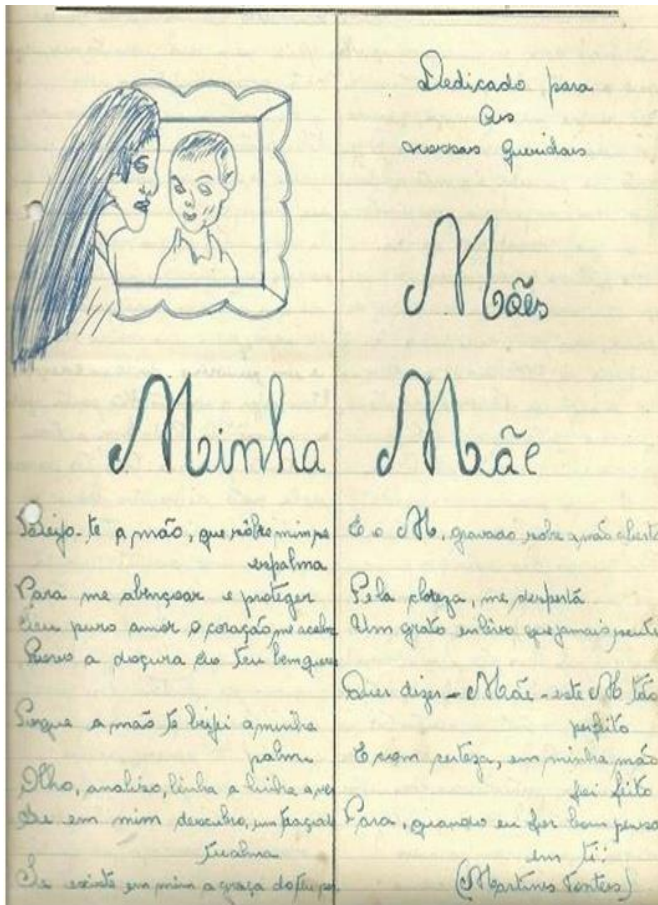 Dedicado para
As
nossas queridas
Mães
Minha Mãe
Beijo-te a mão, que sôbre mim se
espalma
Para me abençoar e proteger
Teu puro amor o coração me acalma
Provo a doçura do teu bem querer
Porque a mão te beijei a minha
palma
Olho, analizo, linha a linha a ver
Se em mim descubro, um traço de
tu'alma
Se existe em mim a graça do teu ser.
E o M, gravado sobre a mão aberta
Pela clareza, me despertá
Um grato enlêvo que jamais senti
Quer dizer - Mãe - este M tão
perfeito
E com certeza, em minha mão
foi feito
Para, quando eu for bom pensar
em ti:
(Martins Fontes)